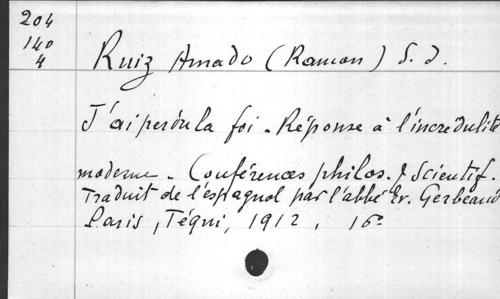 204
140
4
Ruiz Amado (Ramon) S. J.
J'ai perdu la foi. Réponse à l'incrédulité
moderne. Conférences philos. & scientif.
Traduit de l'espagnol par l'abbé Er. Gerbeaud
Paris, Téqui, 1912, 16°